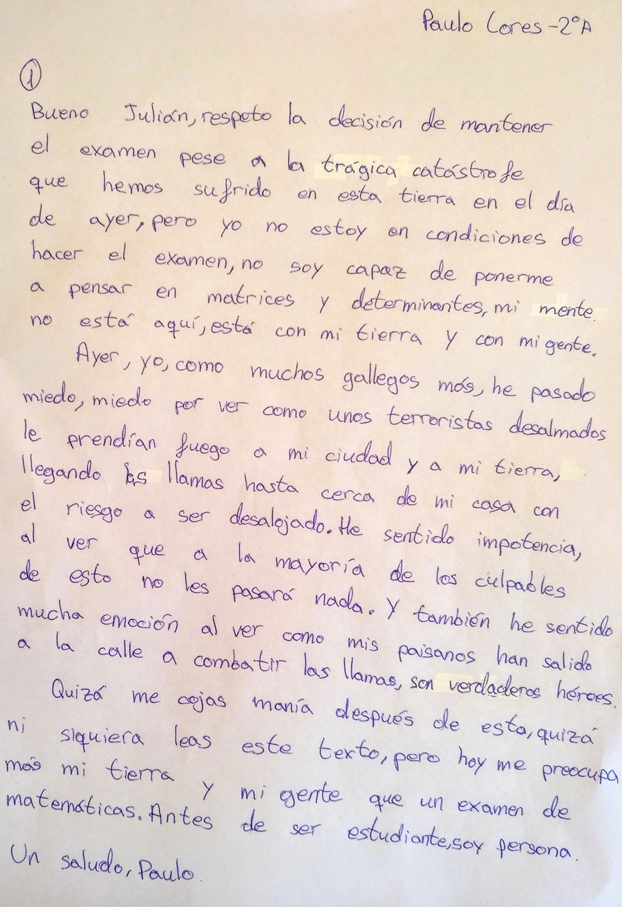 Paulo Lores-2ºA
①
Bueno Julián, respeto la decisión de mantener
el examen pese a la trágica catástrofe
que hemos sufrido en esta tierra en el día
de ayer, pero yo no estoy en condiciones de
hacer el examen, no soy capaz de ponerme
a pensar en matrices y determinantes, mi mente
no está aquí, está con mi tierra y con mi gente.
Ayer, yo, como muchos gallegos más, he pasado
miedo, miedo por ver como unos terroristas desalmados
le prendían fuego a mi ciudad y a mi tierra,
llegando las llamas hasta cerca de mi casa con
el riesgo a ser desalojado. He sentido impotencia,
al ver que a la mayoría de los culpables
de esto no les pasará nada. Y también he sentido
mucha emoción al ver como mis paisanos han salido
a la calle a combatir las llamas, son verdaderos héroes.
Quizá me cojas manía después de esto, quizá
ni siquiera leas este texto, pero hoy me preocupa
más mi tierra y mi gente que un examen de
matemáticas. Antes de ser estudiante, soy persona.
Un saludo, Paulo.